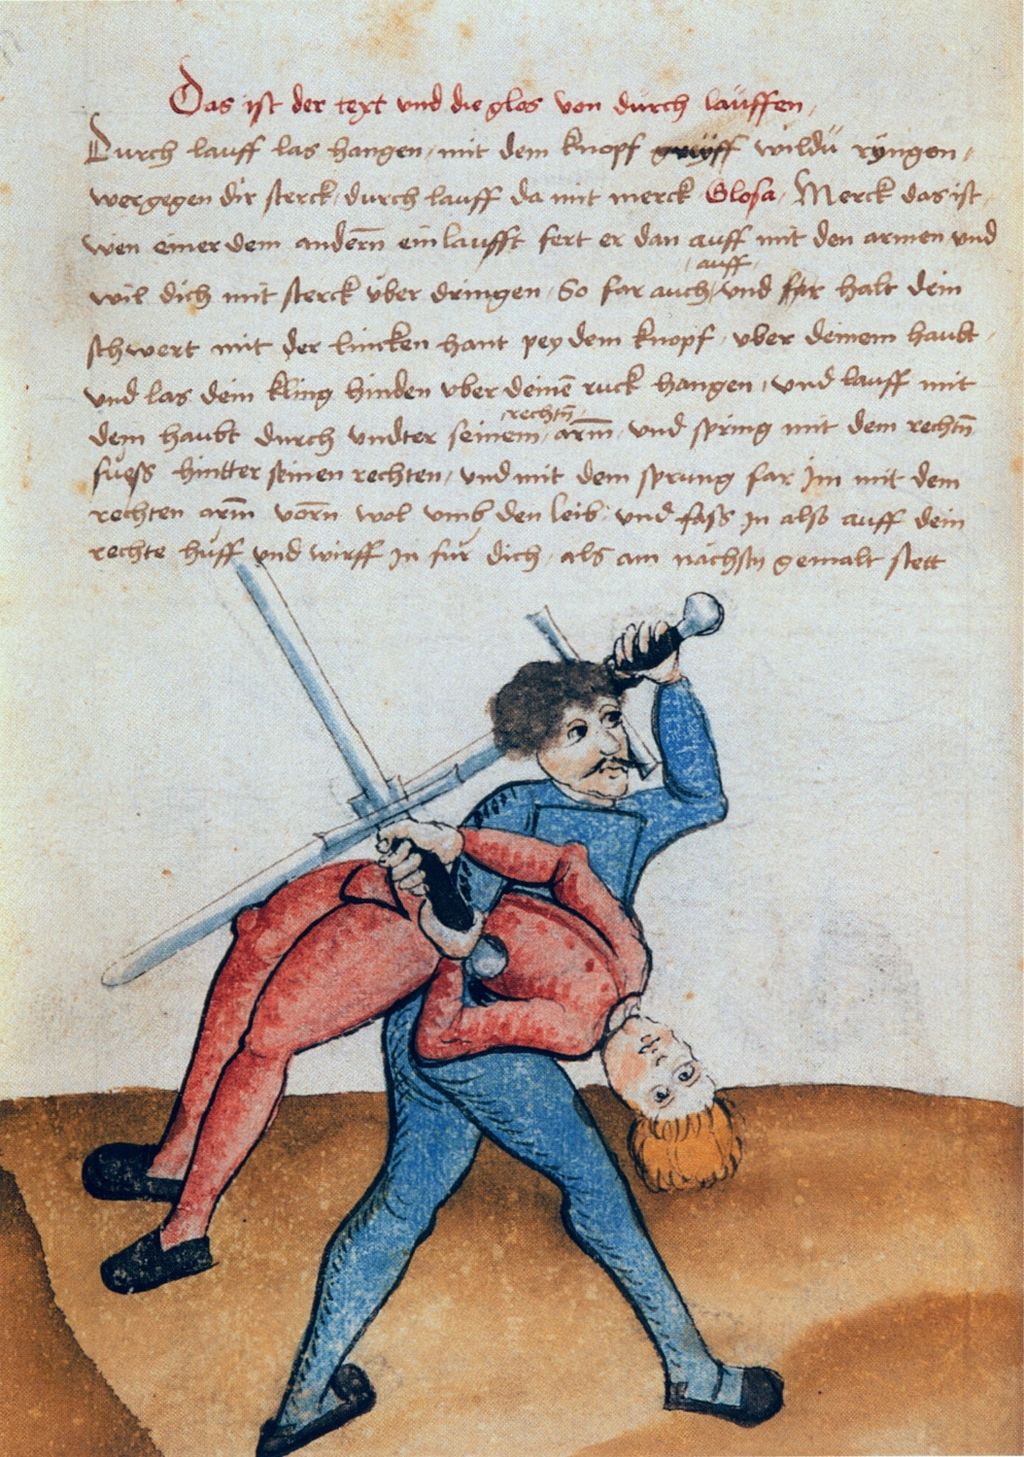 Das ist der text und die glos von durch lauffen
Durch lauff las hangen mit dem knopf greyff wildu ryngen
wer gegen dir sterck durch lauff da mit merck Glosa Merck das ist
wen einer dem andern ein laufft fert er dan auff mit den armen und
wil dich mit sterck uber dringen So far auch auff und halt dein
schwert mit der lincken hant pey dem knopf uber deinem haubt
und las dein kling hinden uber deinē ruck hangen und lauff mit
dem haubt durch undter seinem rechtn̄ arm̄ und spring mit dem rechtn̄
fuess hintter seinen rechten und mit dem sprung far im mit dem
rechten arm̄ vorn̄ wol umb den leib und fass in also auff dein
rechte huff und wirff in fur dich als am nachstn gemalt stett